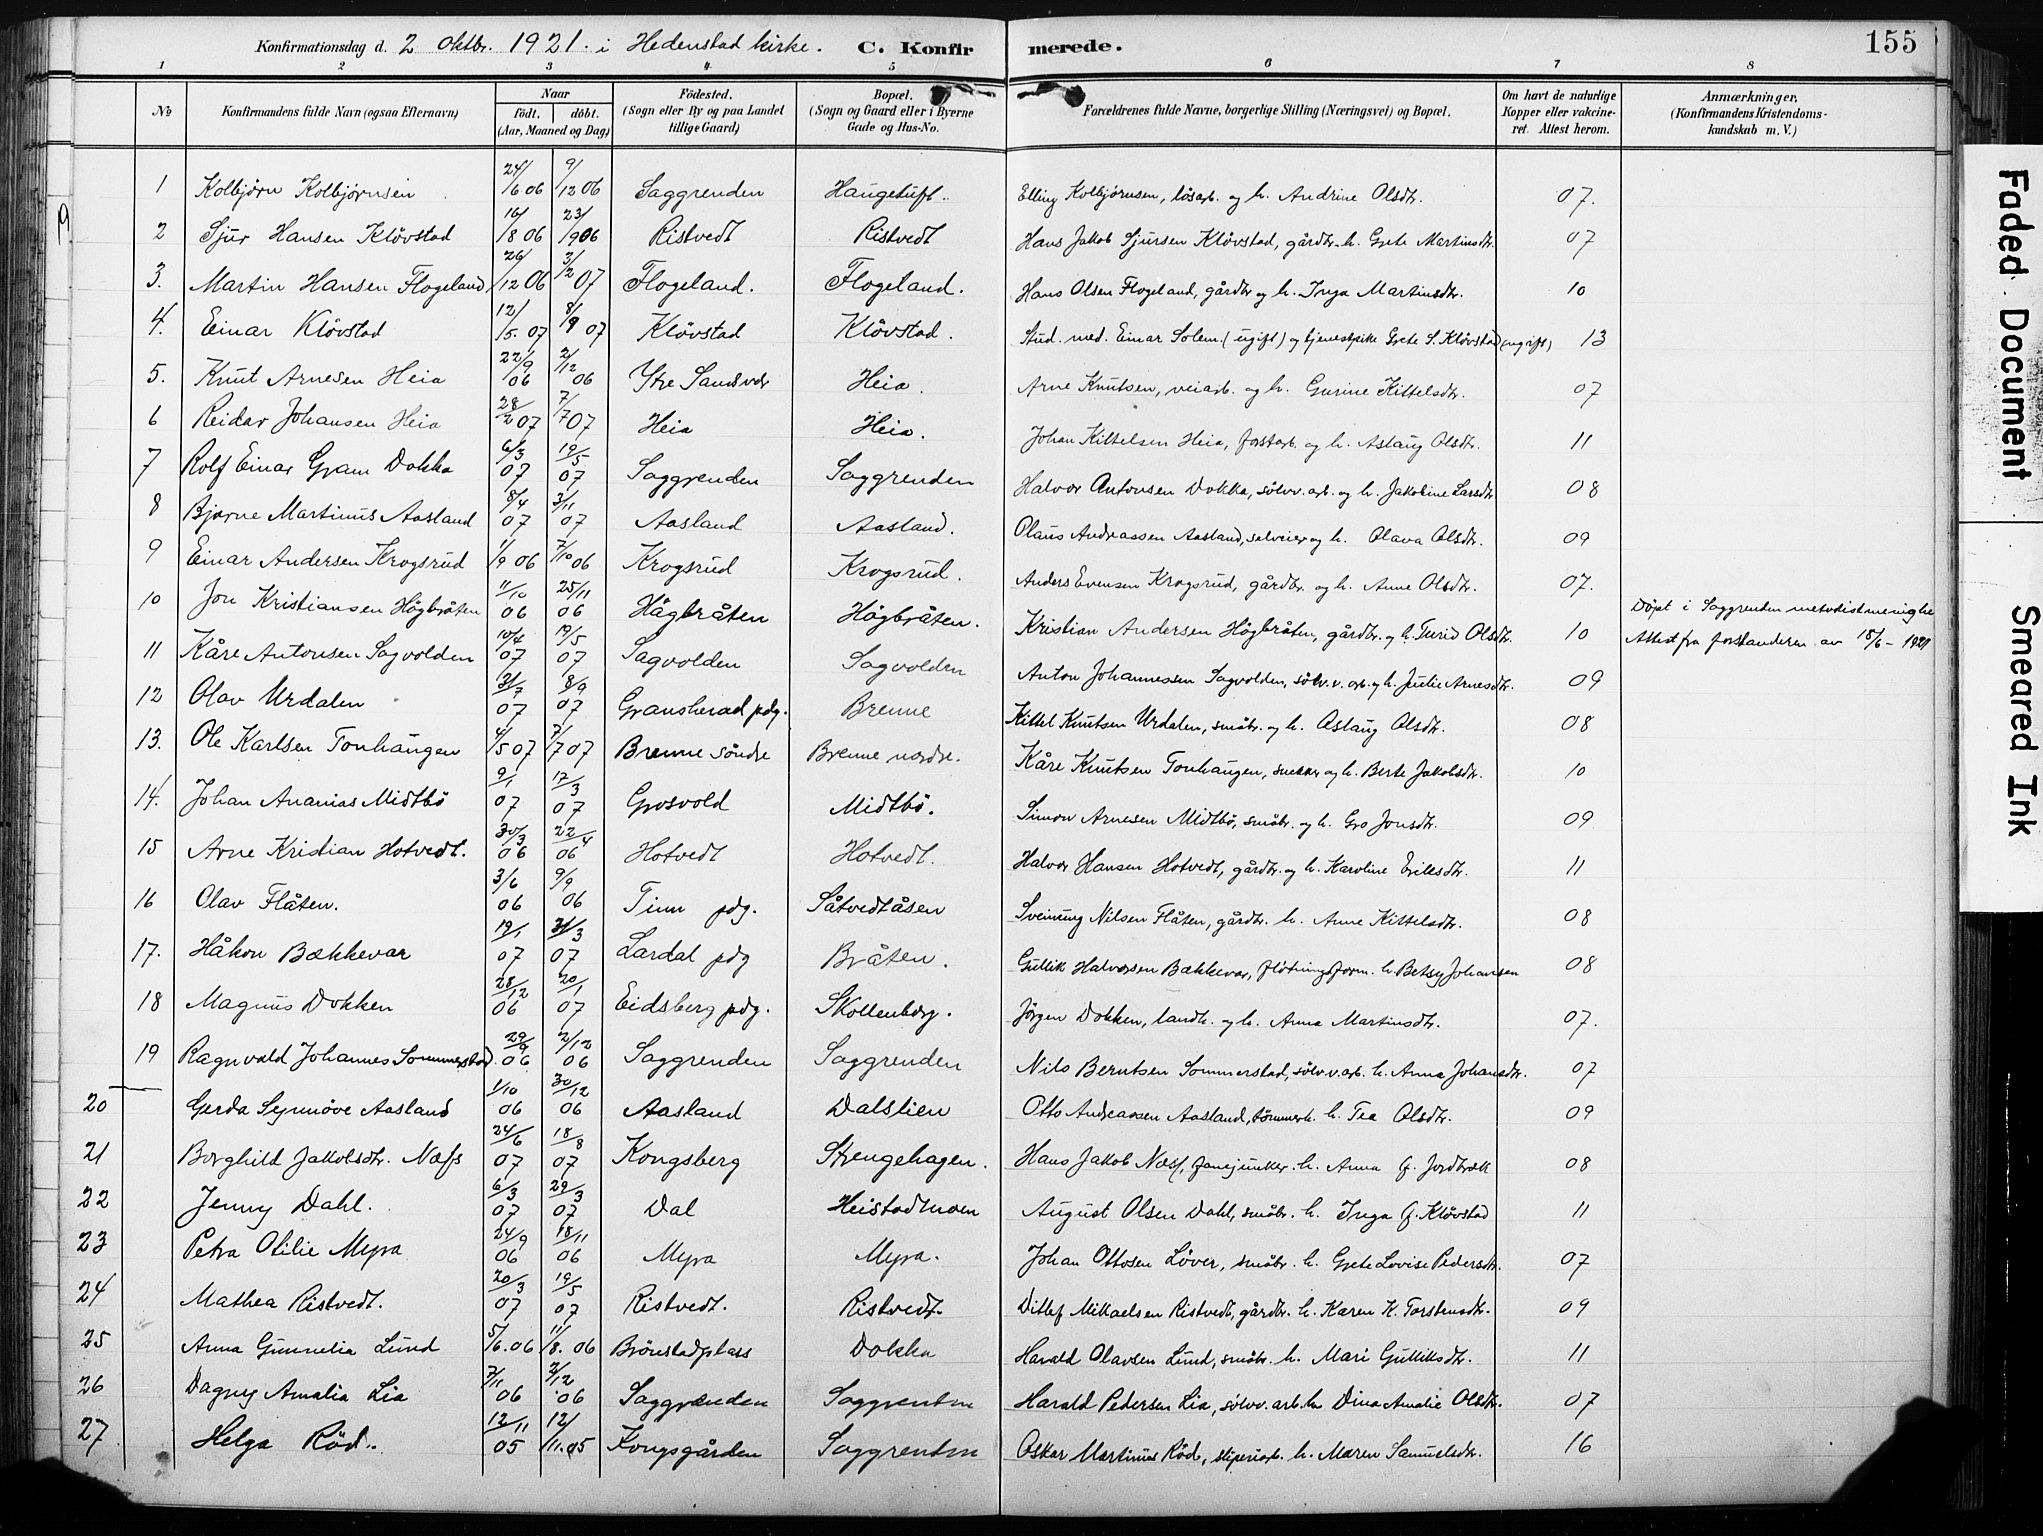 155
Konfirmationsdag d. 2 oktbr. 1921. i Hedenstad kirke. C. Konfirmerede.
1 2 3 4 5 6 7 8
No
Konfirmandens fulde Navn (ogsaa Efternavn)
Naar født. døbt. (Aar, Maaned og Dag)
Fødested. (Sogn eller By og paa Landet tillige Gaard)
Bopæl. (Sogn og Gaard eller i Byerne Gade og Hus-No.
Forældrenes fulde Navne, borgerlige Stilling (Næringsvei) og Bopæl.
Om havt de naturlige Kopper eller vakcineret. Attest herom.
Anmærkninger. (Konfirmandens Kristendomskundskab m. V.)
19
1 Kolbjørn Kolbjørnsen 24/6 06 9/12 06 Saggrenden Haugetuft. Elling Kolbjørnsen, løsarb. og h. Andrine Olsdtr. 07.
2 Sjur Hansen Kløvstad 16/8 06 23/9 06 Ristvedt Ristvedt Hans Jakob Sjursen Kløvstad, gårdbr. h. Grete Martinsdtr. 07
3. Martin Hansen Flogeland 26/12 06 3/2 07 Flogeland. Flogeland. Hans Olsen Flogeland, gårdbr og h. Inga Martinsdtr. 10
4. Einar Kløvstad 12/5. 07 8/9 07 Kløvstad Kløvstad. Stud. med. Einar Solem (ugift) og tjenestpike Grete S. Kløvstad (ugift) 13
5. Knut Arnesen Heia 22/9 06 2/12 06 Ytre Sandsvær Heia. Arne Knutsen, veiarb. og h. Gurine Kittelsdtr. 07
6 Reidar Johansen Heia 28/2 07 7/7 07 Heia Heia. Johan Kittelsen Heia, forstarb. og h. Aslaug Olsdtr. 11
7 Rolf Einar Gram Dokka 6/3 07 19/5 07 Saggrenden Saggrenden Halvor Antonsen Dokka, sølvv. arb. og h. Jakobine Larsdtr 08
8 Bjarne Martinus Aasland 8/4 07 3/11 07 Aasland Aasland. Olaus Andreassen Aasland, selveier og h. Olava Olsdtr. 09
9 Einar Andersen Krogsrud 1/9 06 7/10 06 Krogsrud Krogsrud. Anders Evensen Krogsrud, gårdbr. og h. Anne Olsdtr. 07.
10 Jon Kristiansen Høgbråten 11/10 06 25/11 06 Høgbråten Høgbråten. Kristian Andersen Høgbråten, gårdbr. og h. Turid Olsdtr. 10 Døpt i Saggrenden metodistmenighe Attest fra forstanderen av 15/6 - 1921
11 Kåre Antonsen Sagvolden 10/4 07 19/5 07 Sagvolden Sagvolden Anton Johannessen Sagvolden, sølv.v. arb. og h. Julie Arnesdtr. 09
12 Olav Urdalen 31/7 07 8/9 07 Gransherad pdg. Brenne Kittel Knutsen Urdalen, småbr. og h. Aslaug Olsdtr. 08
13. Ole Karlsen Tonhaugen 4/5 07 7/7 07 Brenne søndre Brenne nordre. Kåre Knutsen Tonhaugen, snekker og h. Berte Jakobsdtr. 10
14. Johan Ananias Midtbø 9/1 07 17/3 07 Grosvold Midtbø. Simon Arnesen Midtbø, småbr. og h. Gro Jonsdtr. 09
15 Arne Kristian Hotvedt. 30/3 06 22/4 06 Hotvedt Hotvedt. Halvor Hansen Hotvedt, gårdbr. og h. Karoline Eriksdtr. 11
16 Olav Flåten. 3/6 06 9/9 06 Tinn pdg. Såtvedtåsen Sveinung Nilsen Flåten, gårdbr. h. Anne Kittelsdtr. 08
17. Håkon Bækkevar 19/1 07 31/3 07 Lardal pdg Bråten. Gullik Halvorsen Bækkevar, fløtningsform. h. Betsy Johansen 08
18 Magnus Dokken 28/12 06 20/1 07 Eidsberg pdg. Skollenborg. Jørgen Dokken, landh. og h. Anna Martinsdtr. 07.
19 Ragnvald Johannes Sommerstad 29/9 06 2/12 06 Saggrenden Saggrenden Nils Berntsen Sommerstad, sølv.v.arb. h. Anna Johansdtr. 07
20 Gerda Synnøve Aasland 1/10 06 30/12 06 Aasland Dalslien Otto Andreassen Aasland, tømmerh. h. Tea Olsdtr. 09
21 Borghild Jakobsdtr. Næss 24/6 07 18/8 07 Kongsberg Strengehagen. Hans Jakob Næss, fanejunker. h. Anna f. Jordbræk 08
22 Jenny Dahl. 6/3 07 29/3 07 Dal Heistadmoen August Olsen Dahl, småbr. h. Inga f. Kløvstad 11
23 Petra Otilie Myra 24/9 06 18/11 06 Myra Myra. Johan Ottosen Løver, småbr. h. Grete Lovise Pedersdtr. 07
24 Mathea Ristvedt. 20/3 07 19/5 07 Ristvedt. Ristvedt Ditlef Mikaelsen Ristvedt, gårdbr. h. Karen K. Torstensdtr. 09
25 Anna Gunnelia Lund 5/6. 06 11/8. 06 Brønstadplass Dokka Harald Olavsen Lund, småbr. h. Mari Gulliksdtr. 11
26 Dagny Amalia Lia 7/11 06 2/12 06 Saggrenden Saggrenden Harald Pedersen Lia, sølvv. arb. h. Dina Amalie Olsdtr. 07
27 Helga Rød. 12/11 05 12/11. 05 Kongsgården Saggrenden Oskar Martinius Rød, sliperiarb. h. Maren Samuelsdtr. 16
Faded Document
Smeared Ink